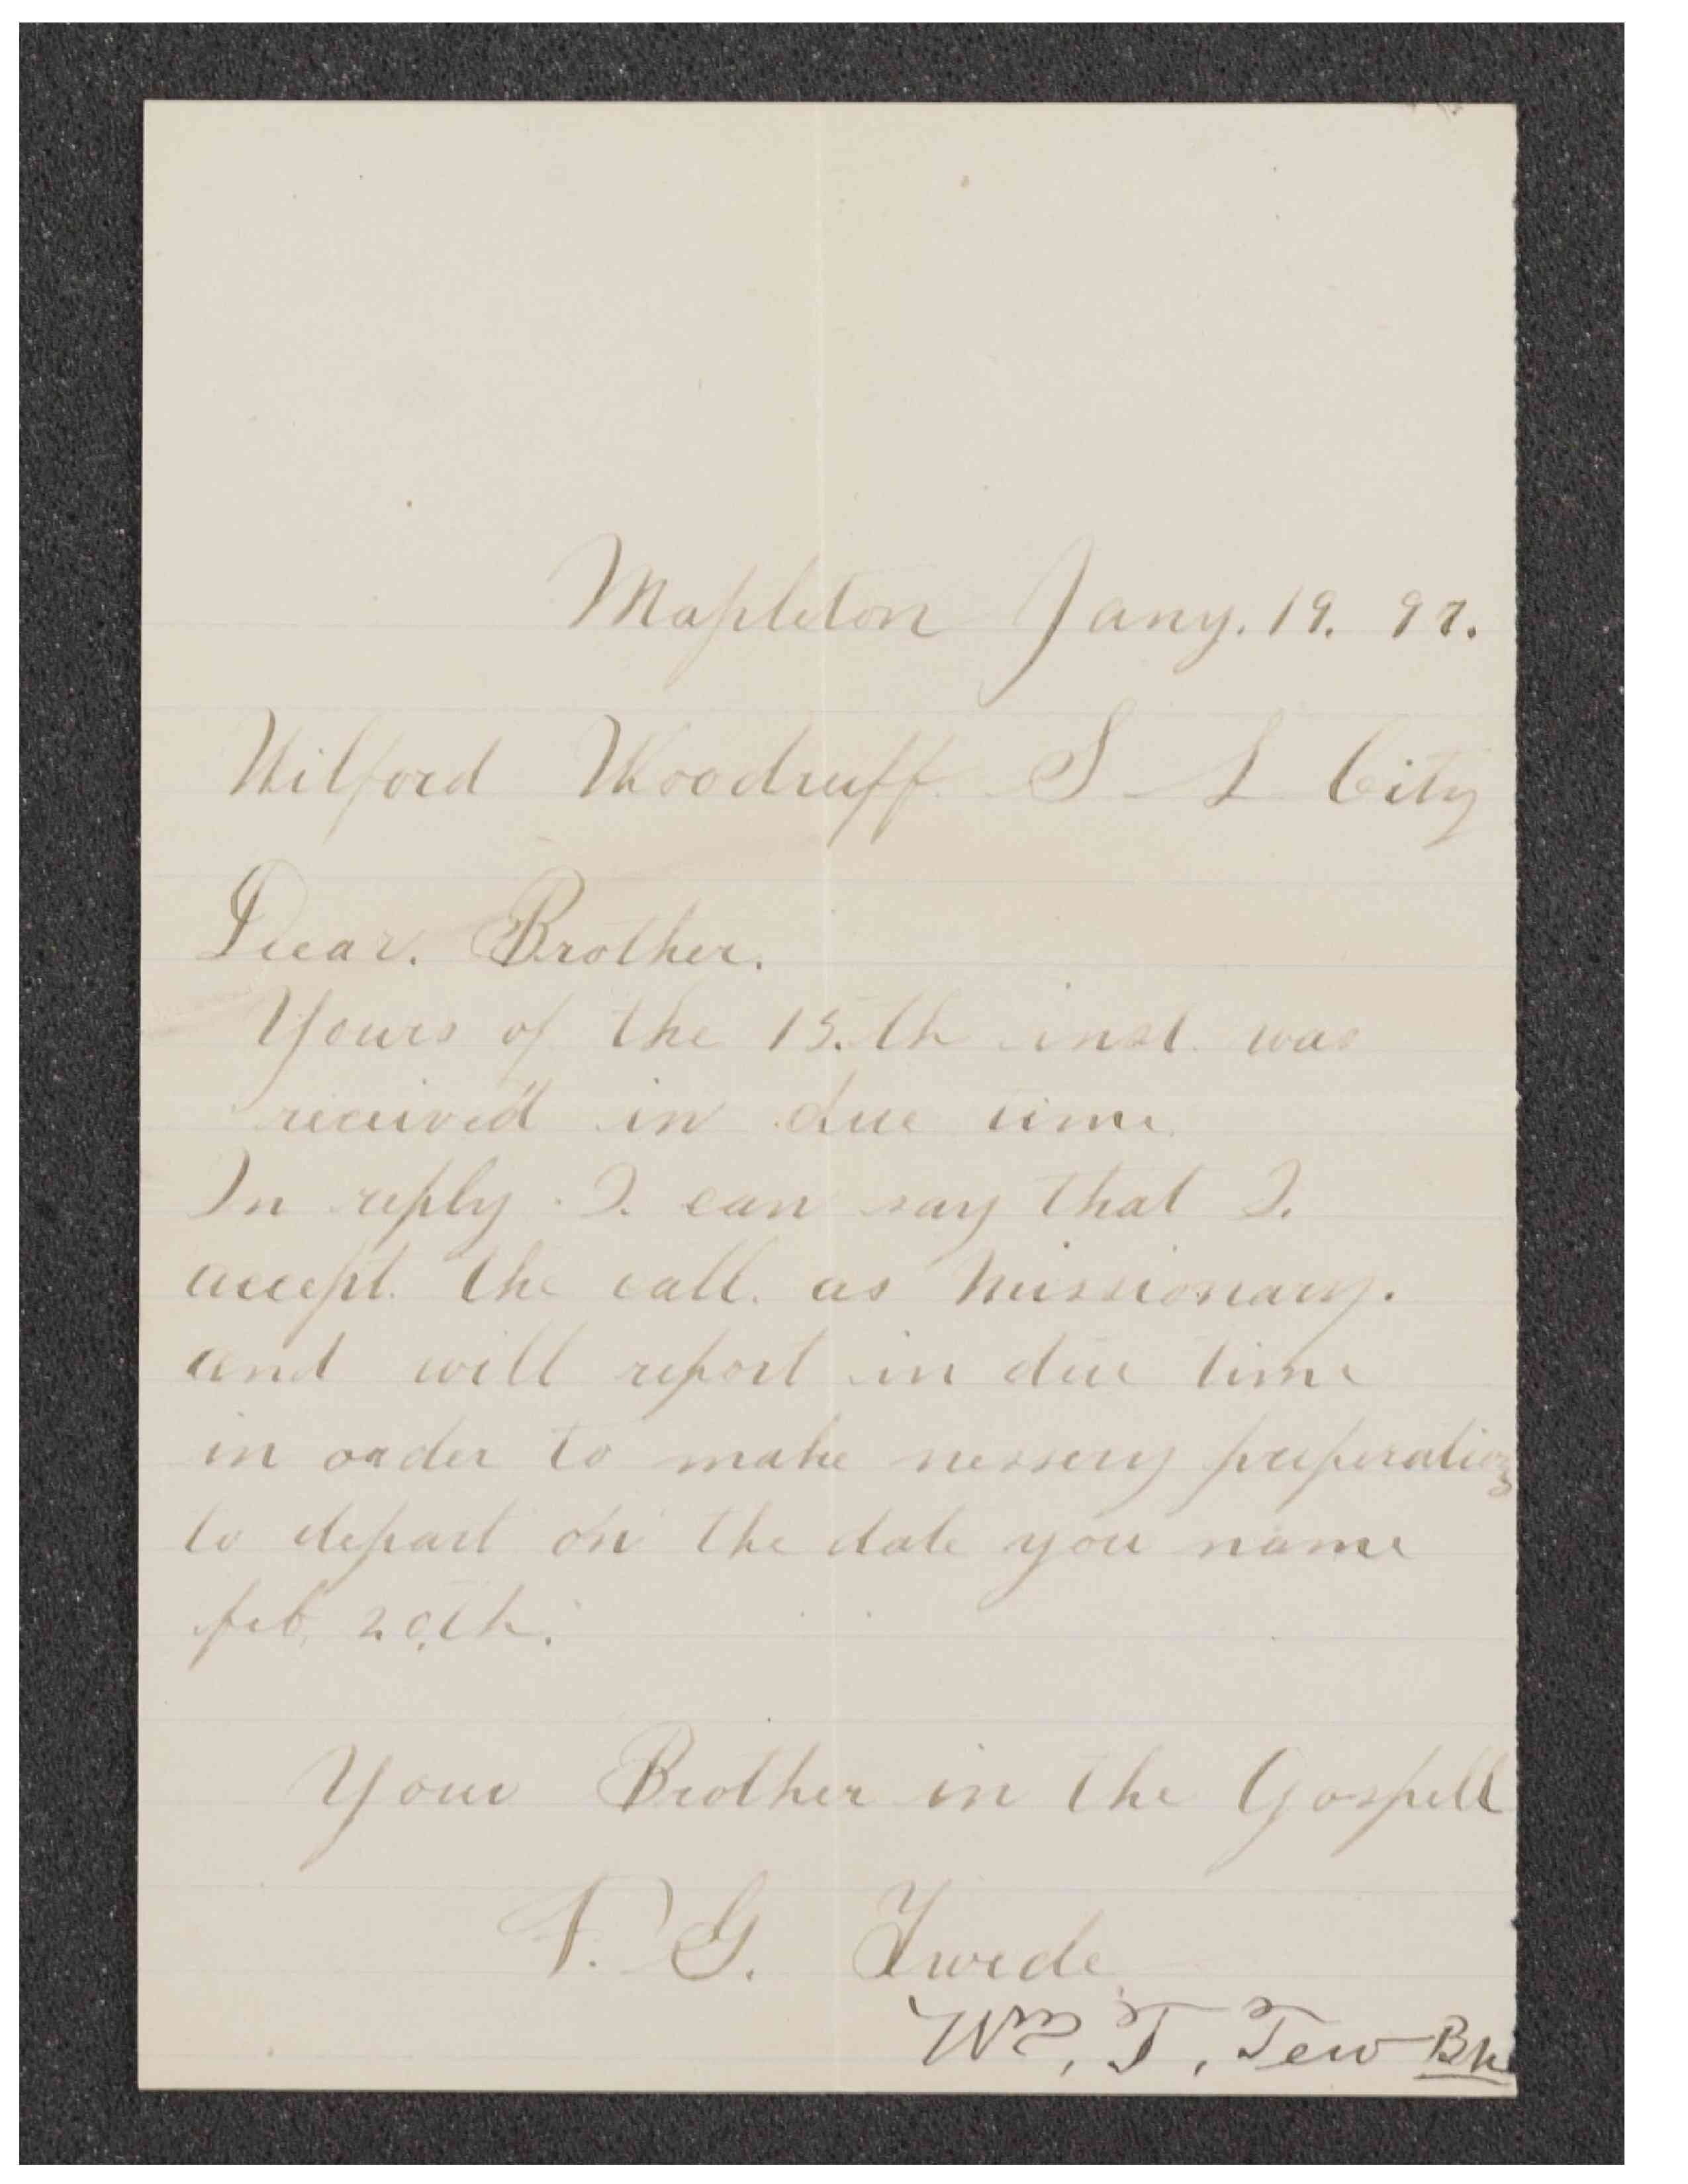 Mapleton Jany. 19. 97.
Wilford Woodruff. S L City
Dear. Brother.
Yours of the 15.th inst. was
received in due time.
In reply. I. can say that I.
accept. the call. as Missionary.
and will report in due time
in order to make nessery preperation
to depart on the date you name
feb, 20.th.
Your Brother in the Gospell
F. G. Twede.
Wm, T, Tew Bh